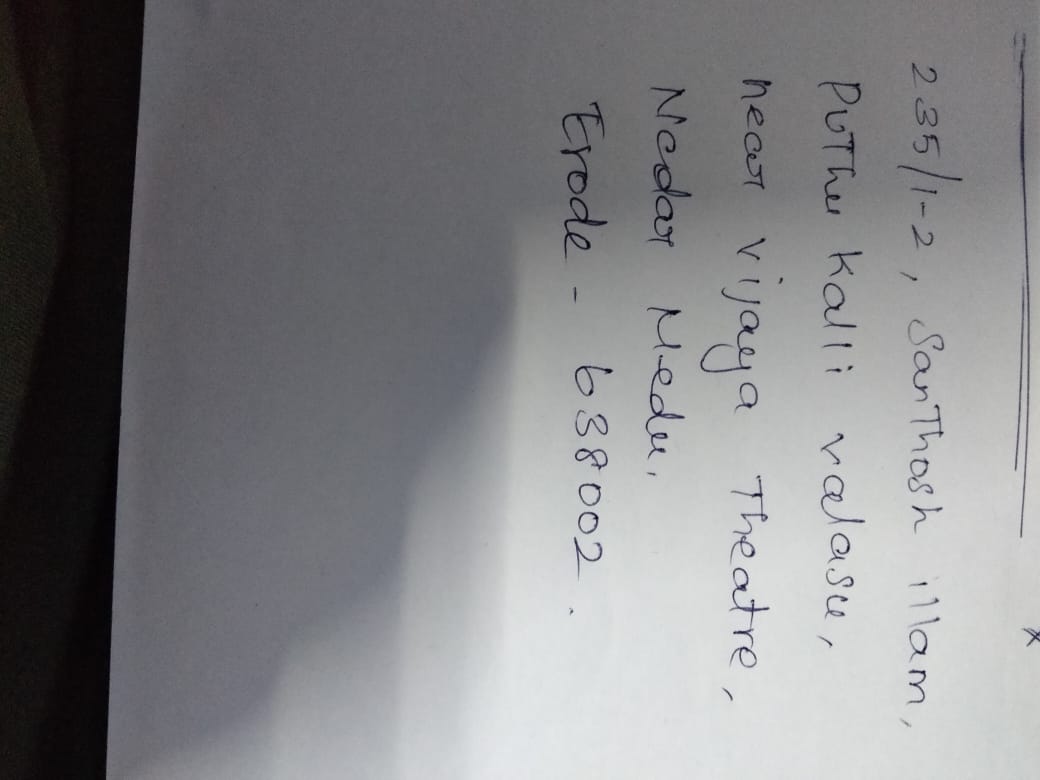 235/1-2, SanThosh illam,
PuThu Kalli valasu,
near vijaya Theatre,
Nadar Medu,
Erode - 638002.